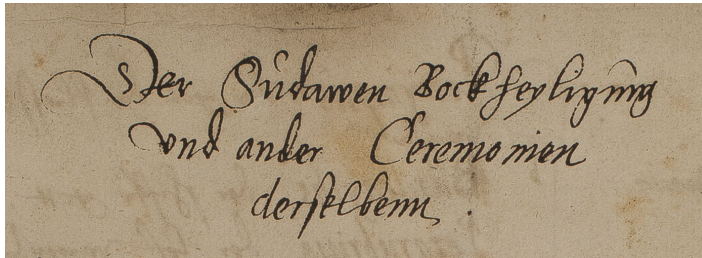 Der Sudawen Bockheyligung
vnd ander Ceremonien
derselbenn.